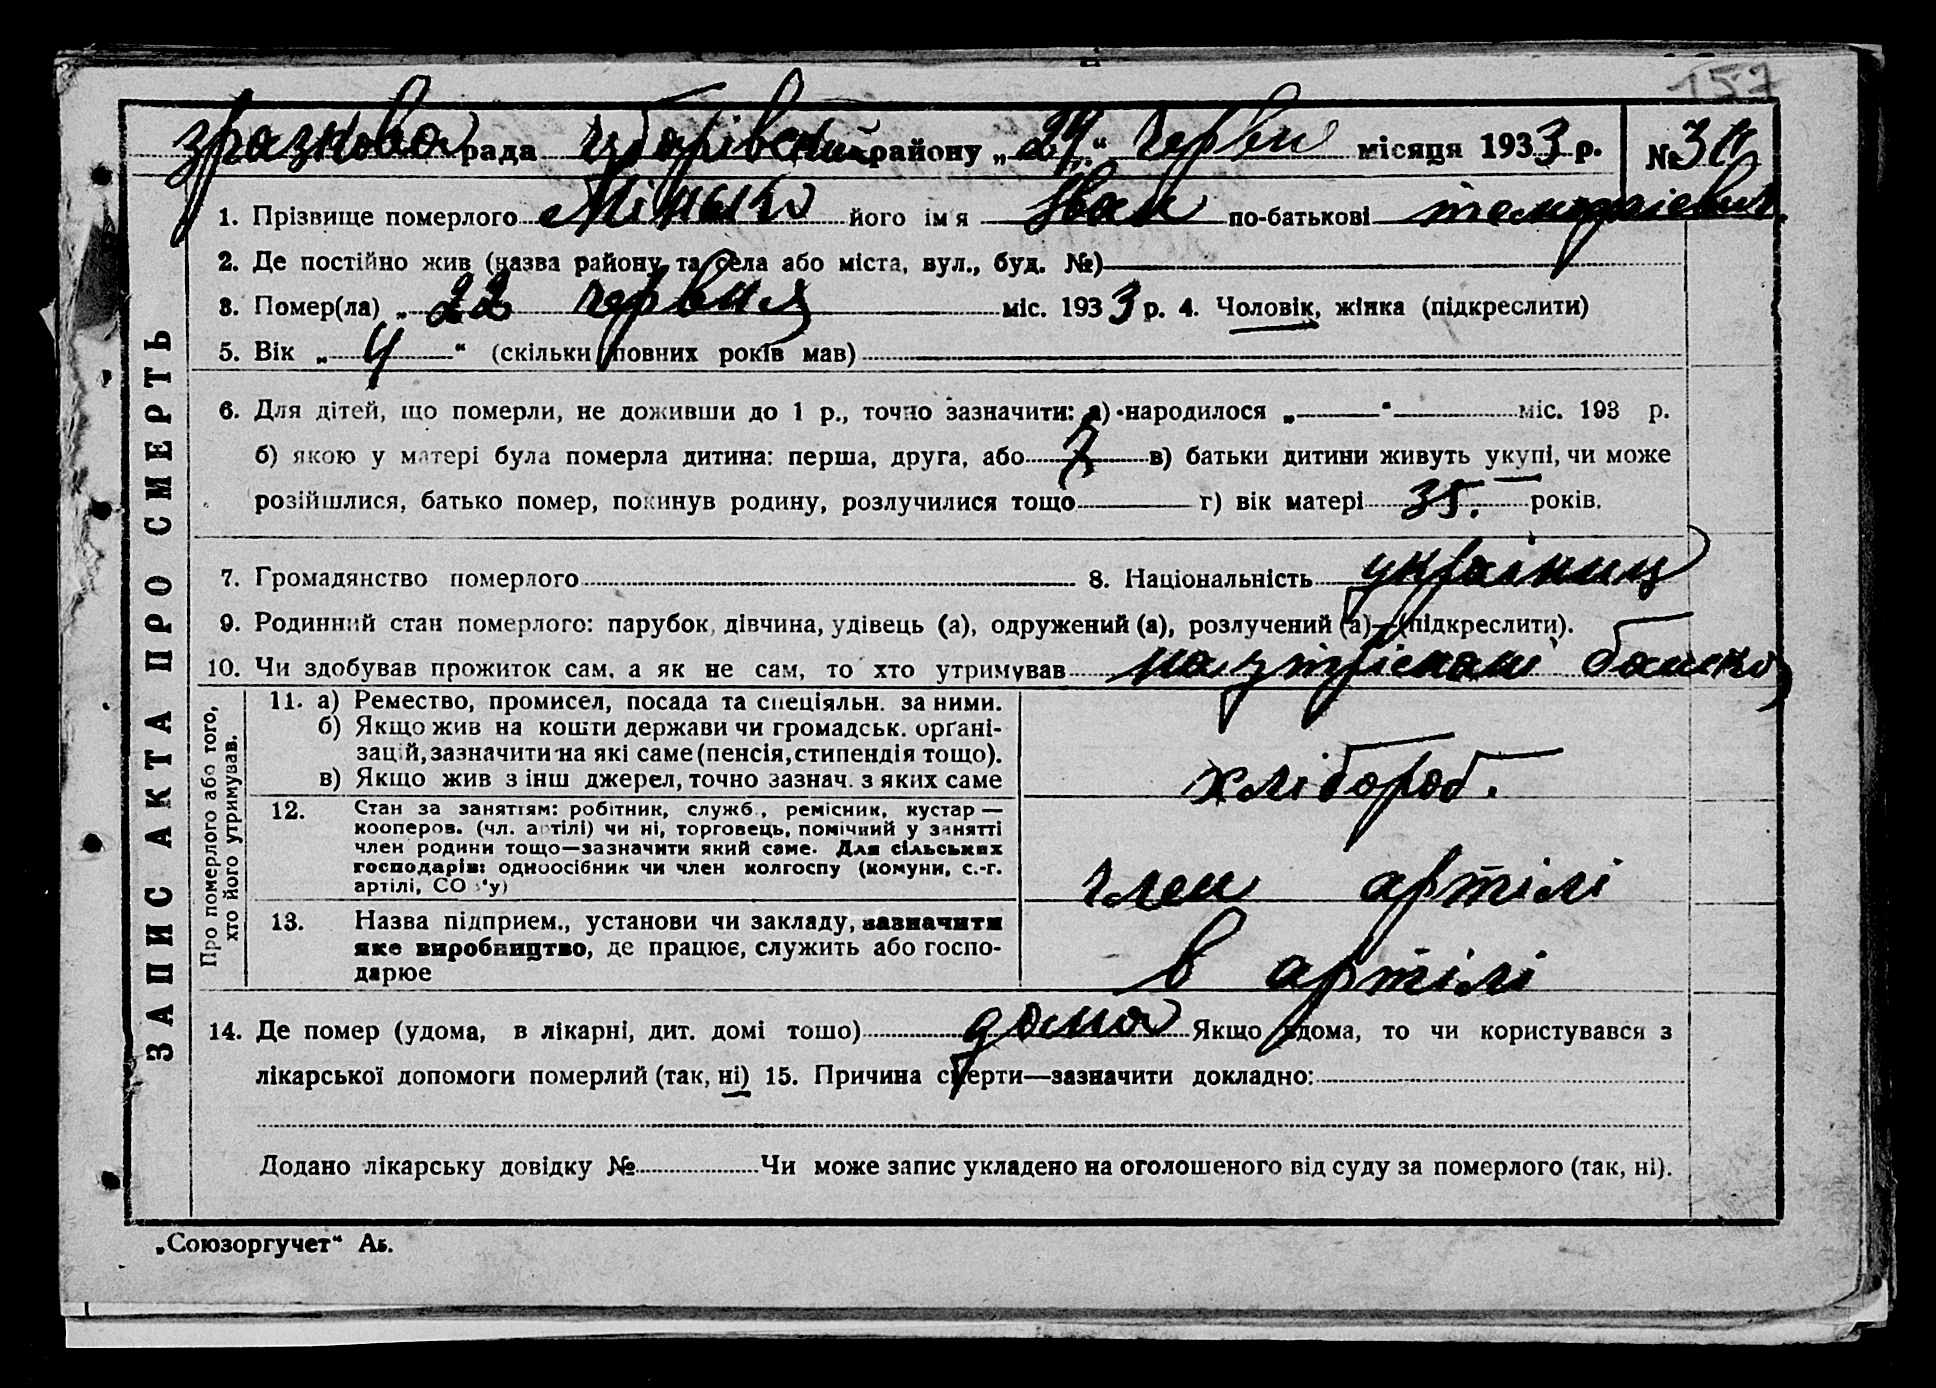 157
зразкова рада Чубарівський району „24“ червня місяця 1933 р. №
1. Прізвище померлого Мінько його ім'я Іван по-батькові
2. Де постійно жив (назва району та села або міста, вул., буд. №)
3. Помер(ла) „22 червня міс. 1933 р. 4. Чоловік, жінка (підкреслити)
5. Вік „4“ (скільки повних років мав)
6. Для дітей, що померли, не доживши до 1 р., точно зазначити: а) народилося „ “ міс. 193 р.
б) якою у матері була померла дитина: перша, друга, або 7 в) батьки дитини живуть укупі, чи може
розійшлися, батько помер, покинув родину, розлучилися тощо г) вік матері 35. років.
7. Громадянство померлого 8. Національність українец
9. Родинний стан померлого: парубок, дівчина, удівець (а), одружений (а), розлучений (а)—(підкреслити).
10. Чи здобував прожиток сам, а як не сам, то хто утримував на утрімані батько
ЗАПИС АКТА ПРО СМЕРТЬ
Про померлого або того,
хто його утримував.
11. а) Ремество, промисел, посада та спеціяльн. за ними.
б) Якщо жив на кошти держави чи громадськ. органі-
зацій, зазначити на які саме (пенсія, стипендія тощо).
в) Якщо жив з інш джерел, точно зазнач. з яких саме
хлібороб.
12. Стан за заняттям: робітник, служб., ремісник, кустар —
кооперов. (чл. артілі) чи ні, торговець, помічний у занятті
член родини тощо—зазначити який саме. Для сільських
господарів: одноосібник чи член колгоспу (комуни, с.-г.
артілі, СОЗ'у)
член артілі
13. Назва підприєм., установи чи закладу, зазначити
яке виробництво, де працює, служить або госпо-
дарює
в артілі
14. Де помер (удома, в лікарні, дит. домі тошо) дома Якщо вдома, то чи користувався з
лікарської допомоги померлий (так, ні) 15. Причина смерти—зазначити докладно:
Додано лікарську довідку № Чи може запис укладено на оголошеного від суду за померлого (так, ні).
„Союзоргучет“ Аб.